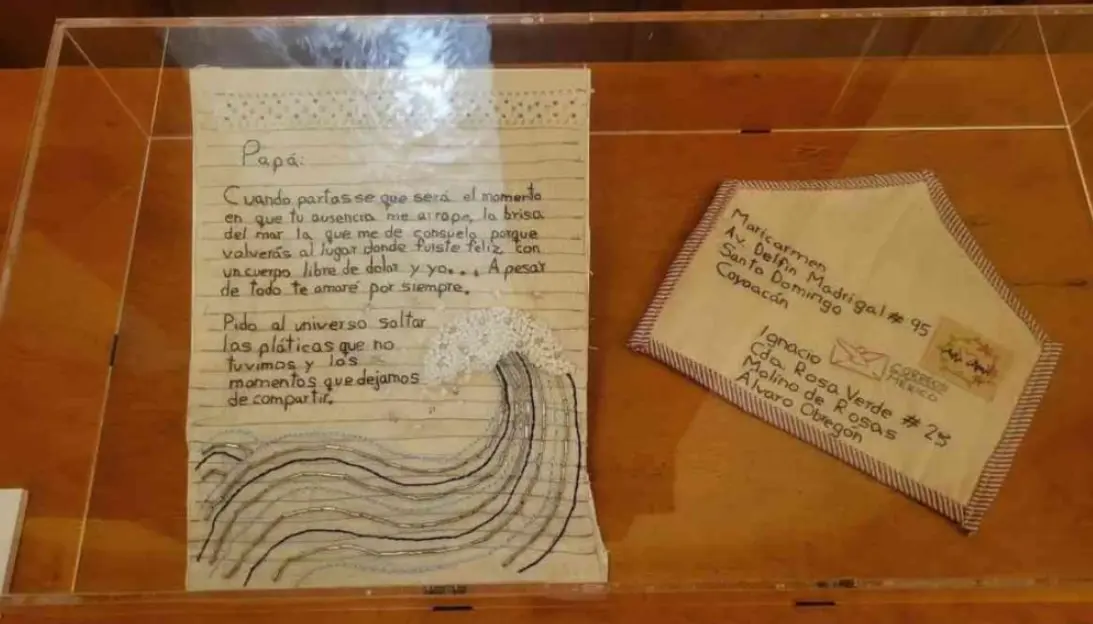 Papá:
Cuando partas se que será el momento
en que tu ausencia me arrope, la brisa
del mar la que me de consuelo porque
volverás al lugar donde fuiste feliz con
un cuerpo libre de dolor y yo... A pesar
de todo te amaré por siempre.
Pido al universo soltar
las pláticas que no
tuvimos y los
momentos que dejamos
de compartir.
Maricarmen
Av. Delfín Madrigal # 95
Santo Domingo
Coyoacán
Ignacio
Cda. Rosa Verde # 25
Molino de Rosas
Álvaro Obregón
CORREOS
MÉXICO